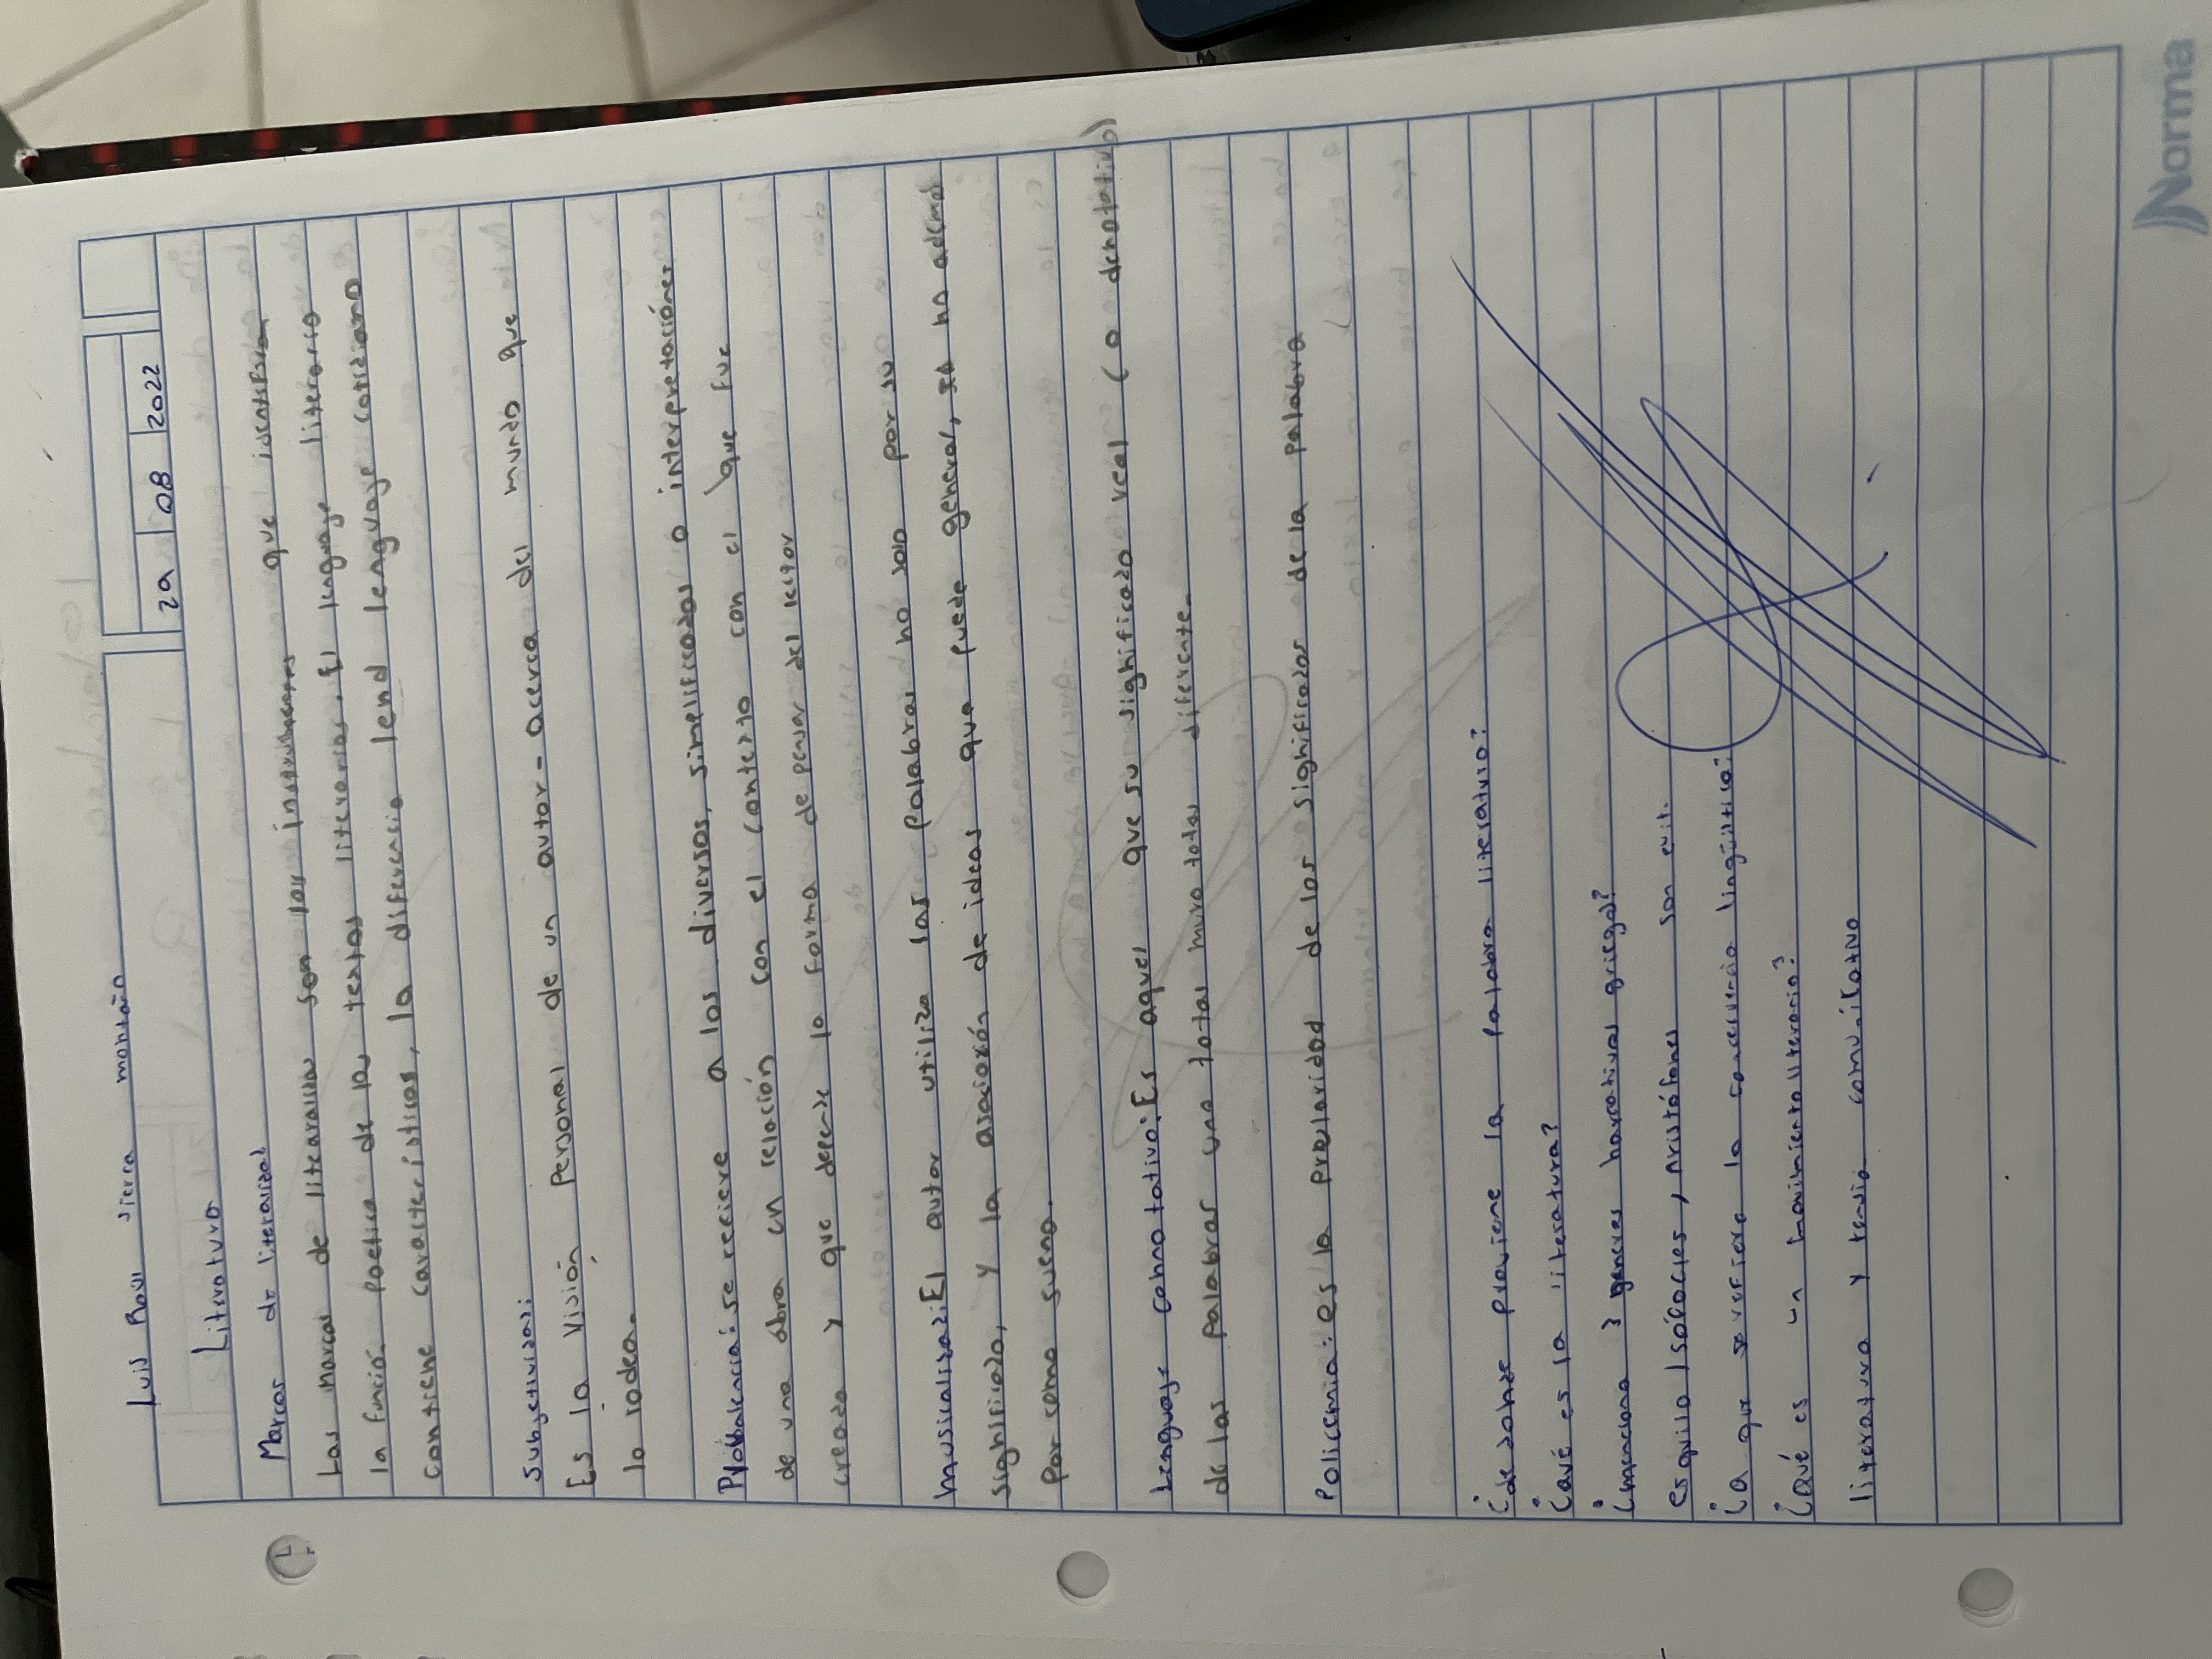 Luis Raul sierra montaño
29 08 2022
Literatura
Marcas de literalidad
Las marcas de litearalidad son los que identifican
la función poetica de los textos literarios. El lenguaje literario
contiene caracteristicas, la diferencia lend lenguaje cotidiano
subjetividad:
Es la visión personal de un autor - acerca del mundo que
lo rodea.
se refiere a los diversos, simplificados o interpretaciónes
de una obra en relación con el contexto con el que fue
creada y que depende la forma de pensar del lector
musicalidad: El autor utiliza las palabras no solo por su
significado, y la asociaxión de ideas que puede general, no ademas
por como suena.
Lenguaje connotativo: Es aquel que su significado real (o denotativo)
de las palabras una totas muro totas diferente.
Policemia: es la prularidad de los significados de la palabra
¿de donde proviene la palabra literatura?
¿Qué es la literatura?
¿menciona 3 generes narrativos griego?
esquilo, sófocles, Aristófanes son
¿a que se refiere la lingüistica?
¿Qué es un movimiento literario?
literatura y comunicativo
Norma